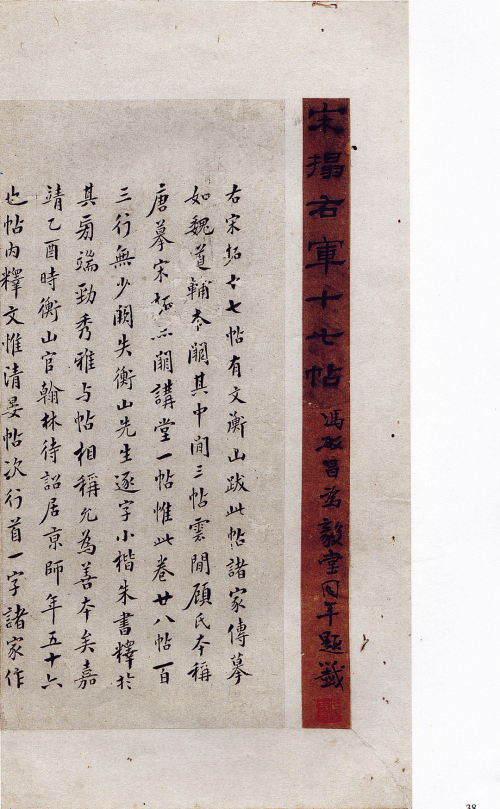 宋搨右軍十七帖
馮敏昌為毅堂同年題籤
右宋拓十七帖有文衡山跋此帖諸家傳摹
如魏道輔本闕其中間三帖雲間顧氏本稱
唐摹宋拓亦闕講堂一帖惟此卷廿八帖一百
三行無少闕失衡山先生逐字小楷朱書釋於
其旁端勁秀雅与帖相稱允為善本矣嘉
靖乙酉時衡山官翰林待詔居京師年五十六
也帖內釋文惟清晏帖次行首一字諸家作
38